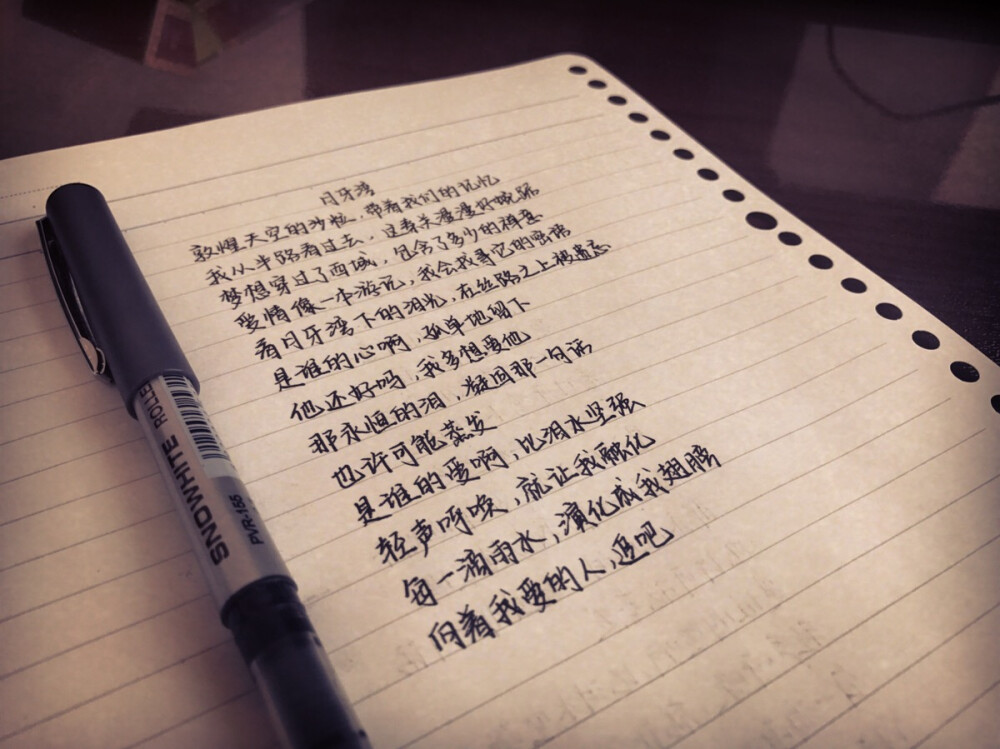 月牙湾
敦煌天空的沙粒，带着我们的记忆
我从半路看过去，这秦关漫漫好蜿蜒
梦想穿过了西域，包含了多少的禅意
爱情像一本游记，我会找寻它的密语
看月牙湾下的泪光，在丝路之上被遗忘
是谁的心啊，孤单地留下
他还好吗，我多想爱他
那永恒的泪，凝固那一句话
也许可能蒸发
是谁的爱啊，比泪水坚强
轻声呼唤，就让我融化
每一滴雨水，演化成我翅膀
向着我爱的人，追吧
SNOWHITE
PVR-155